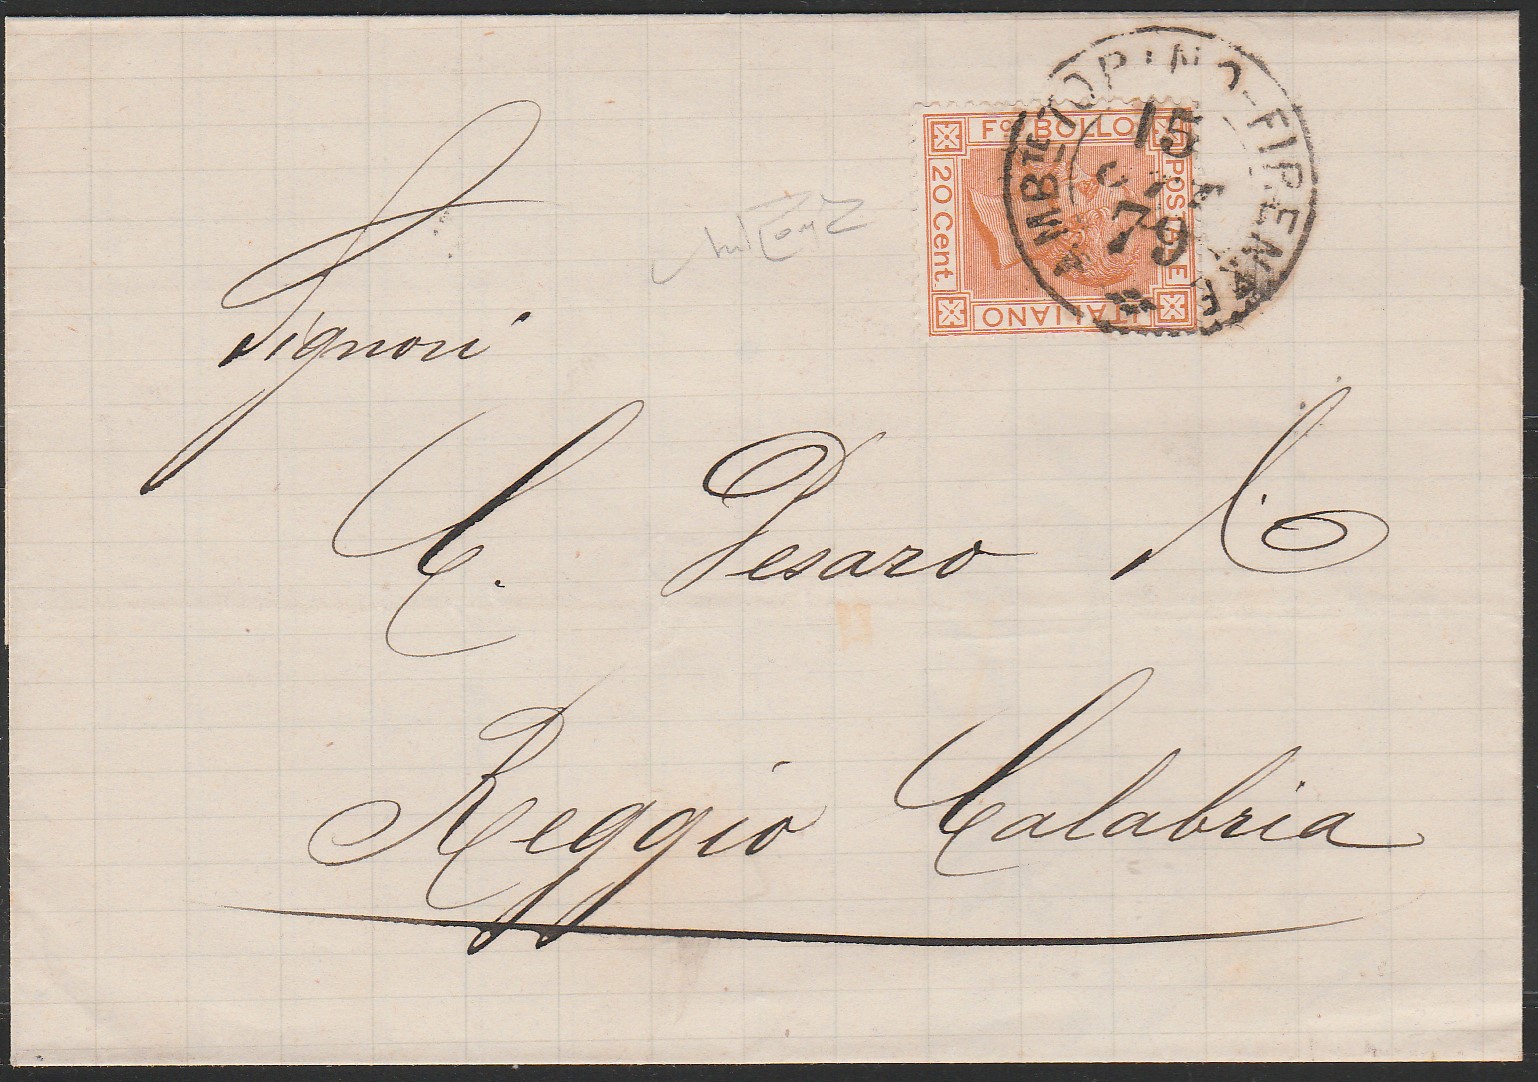 AMB.TE TORINO-FIRENZE
15
OTT
79
Fco BOLLO
POSTALE
ITALIANO
20 Cent.
Signori
C. Pesaro &. C.
Reggio Calabria